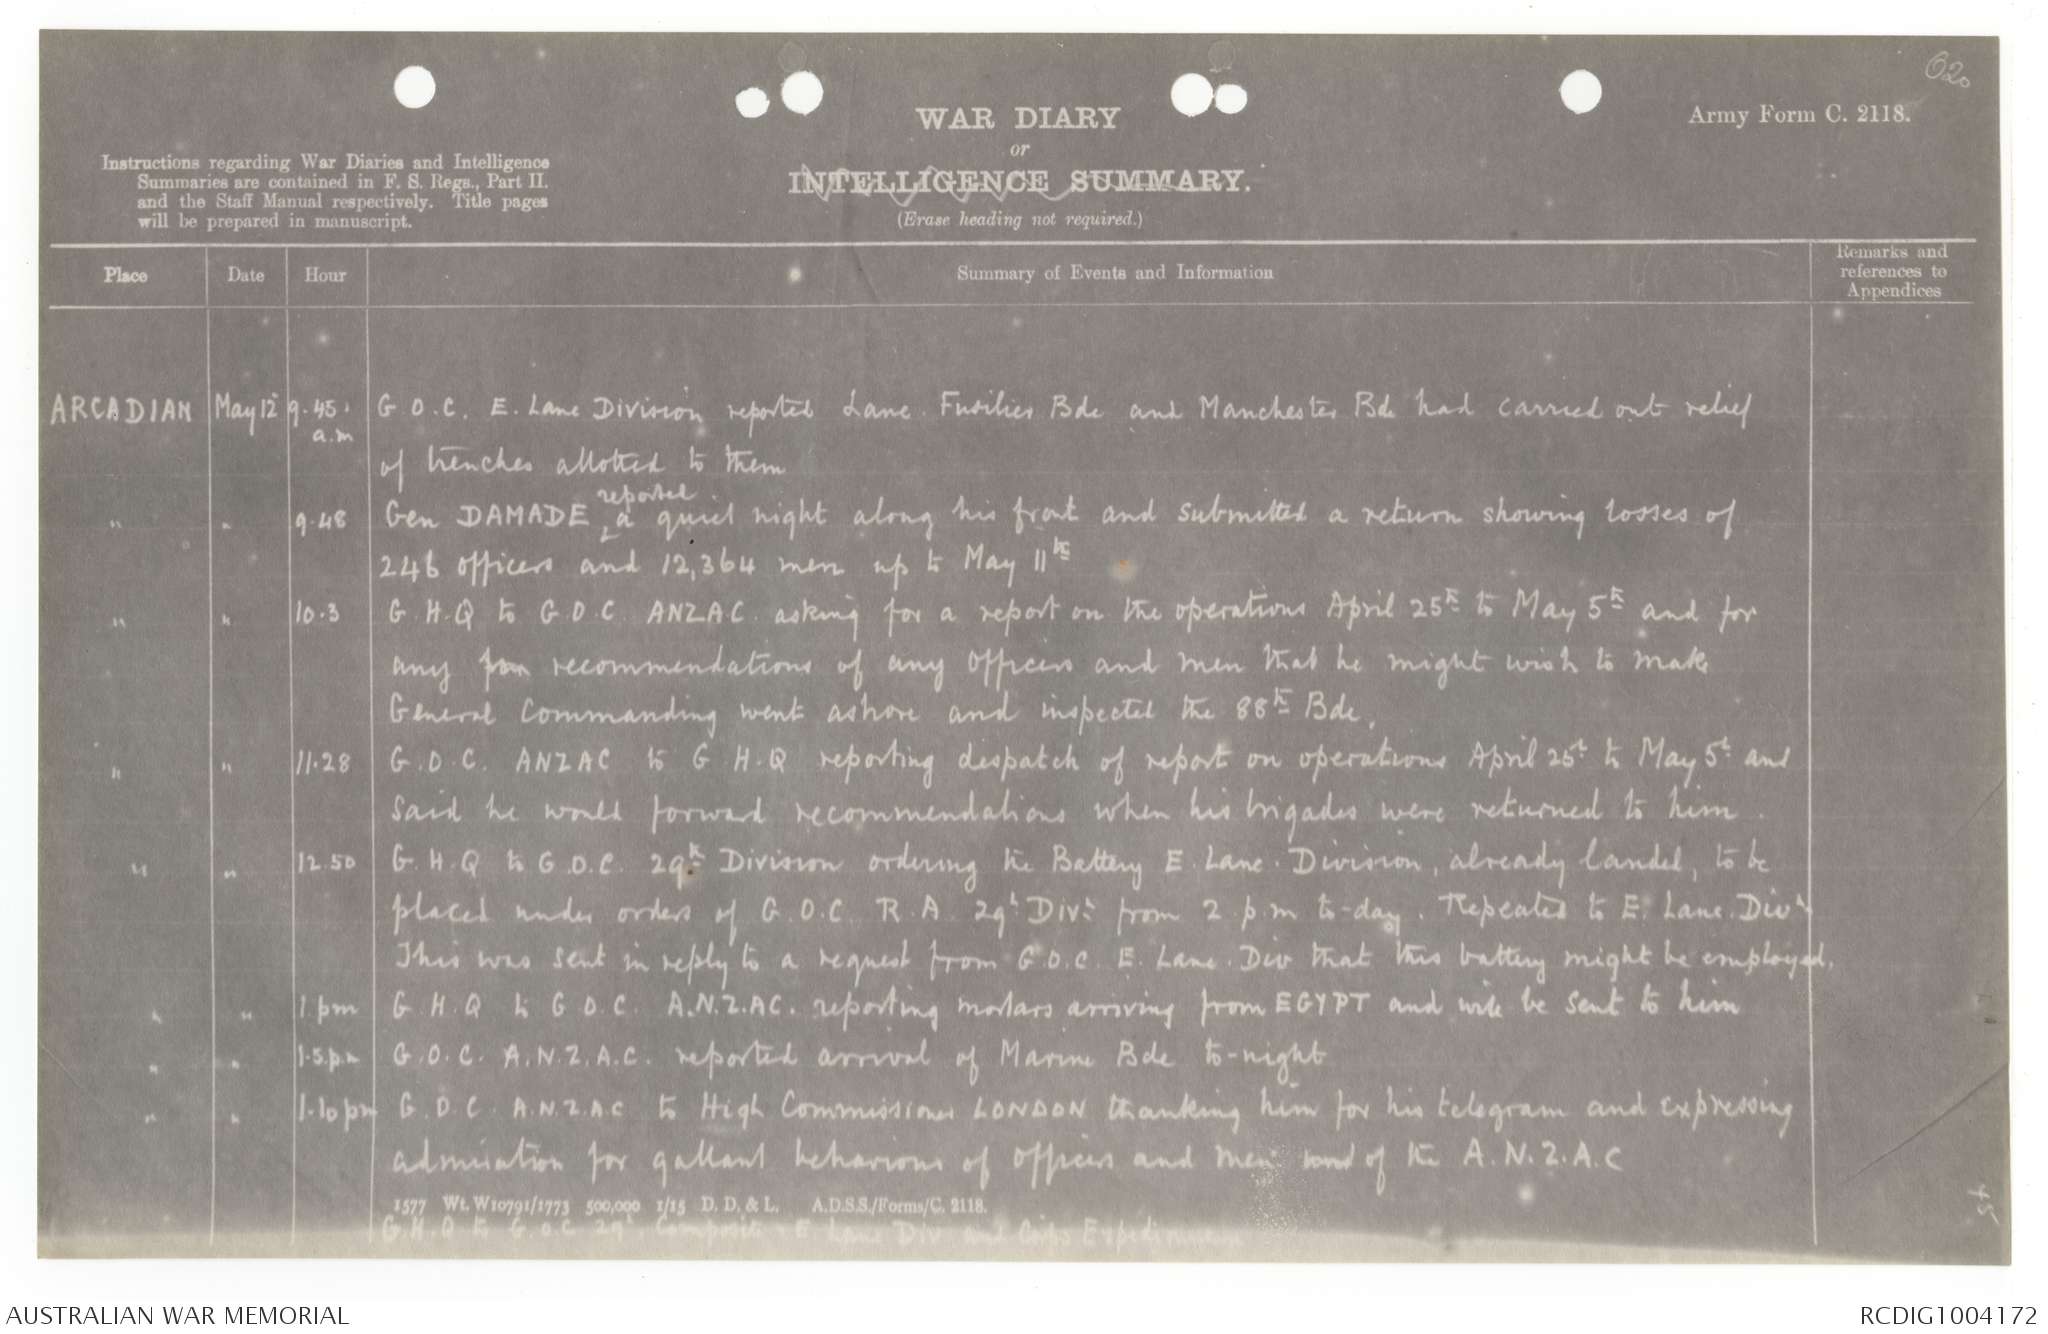 020
WAR DIARY
or
INTELLIGENCE SUMMARY.
(Erase heading not required.)
Army Form C. 2118.
Instructions regarding War Diaries and Intelligence
Summaries are contained in F. S. Regs., Part II.
and the Staff Manual respectively. Title pages
will be prepared in manuscript.
Place Date Hour Summary of Events and Information Remarks and references to Appendices
ARCADIAN May 12 9.45 a.m G.O.C. E. Lanc Division reported Lanc. Fusilier Bde and Manchester Bde had carried out relief
of trenches allotted to them
" " 9.48 Gen DAMADE reported a quiet night along his front and submitted a return showing losses of
246 officers and 12,364 men up to May 11th
" " 10.3 G.H.Q to G.O.C. ANZAC. asking for a report on the operations April 25th to May 5th and for
any recommendations of any officers and men that he might wish to make
General Commanding went ashore and inspected the 88th Bde.
" " 11.28 G.O.C. ANZAC to G.H.Q reporting despatch of report on operations April 25t to May 5t and
said he would forward recommendations when his brigades were returned to him.
" " 12.50 G.H.Q to G.O.C. 29th Division ordering the Battery E. Lanc. Division, already landed, to be
placed under orders of G.O.C. R.A. 29t Divn from 2 p.m to-day. Repeated to E. Lanc. Divn
This was sent in reply to a request from G.O.C. E. Lanc. Div that this battery might be employed.
" " 1.pm G.H.Q to G.O.C. A.N.Z.AC. reporting mortars arriving from EGYPT and will be sent to him
" " 1.5.p.m G.O.C. A.N.Z.A.C. reported arrival of Marine Bde to-night
" " 1.10pm G.O.C. A.N.Z.AC to High Commissioner LONDON thanking him for his telegram and expressing
admiration for gallant behaviour of officers and men of the A.N.Z.A.C
1577 Wt. W10791/1773 500,000 1/15 D. D. & L. A.D.S.S./Forms/C. 2118.
G.H.Q to G.O.C 29t. Composite. E Lanc Div and Corps Expeditionnaire
45
AUSTRALIAN WAR MEMORIAL
RCDIG1004172